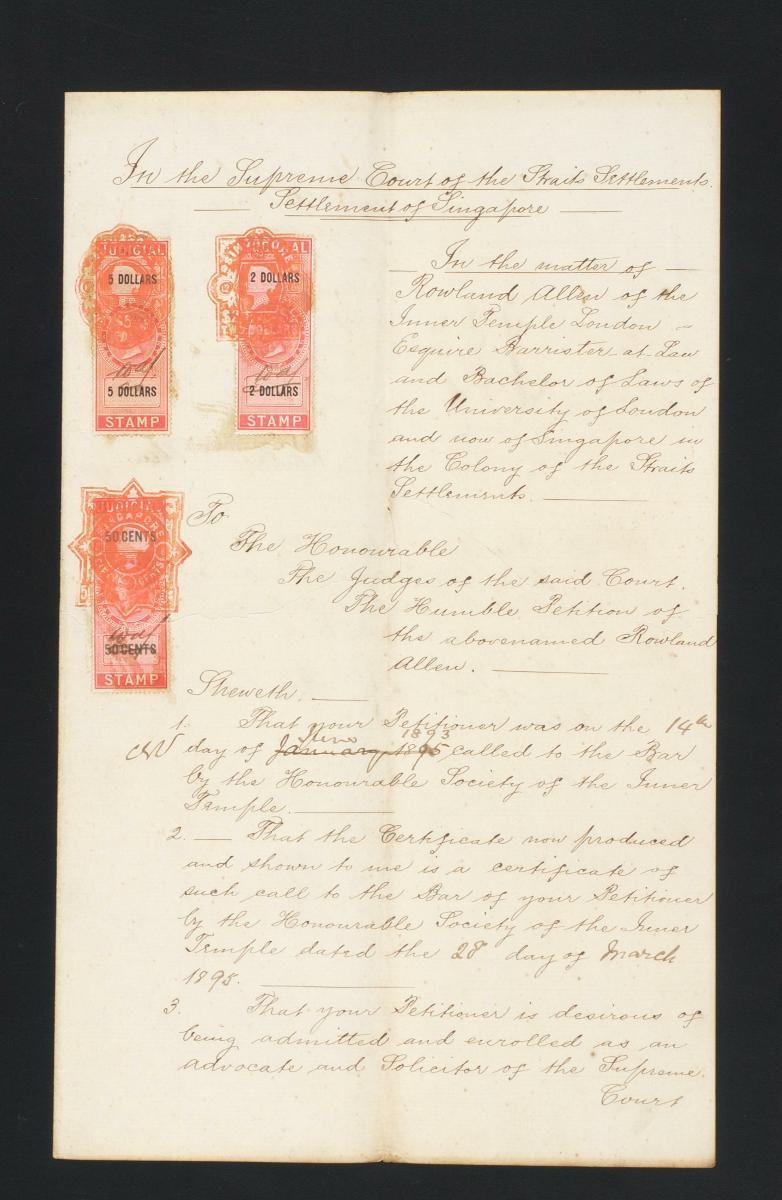 In the Supreme Court of the Straits Settlements.
Settlement of Singapore
JUDICIAL
5 DOLLARS
5 DOLLARS
STAMP
2 DOLLARS
2 DOLLARS
STAMP
In the matter of
Rowland Allen of the
Inner Temple London
Esquire Barrister-at-Law
and Bachelor of Laws of
the University of London
and now of Singapore in
the Colony of the Straits
Settlements.
JUDICIAL
SINGAPORE
50 CENTS
50 CENTS
STAMP
To
The Honourable
The Judges of the said Court.
The Humble Petition of
the abovenamed Rowland
Allen.
Sheweth.
1. That your Petitioner was on the 14th
June 1893
day of January 1895 called to the Bar
by the Honourable Society of the Inner
Temple.
2. That the Certificate now produced
and shown to me is a certificate of
such call to the Bar of your Petitioner
by the Honourable Society of the Inner
Temple dated the 28 day of March
1895.
3. That your Petitioner is desirous of
being admitted and enrolled as an
advocate and Solicitor of the Supreme
Court